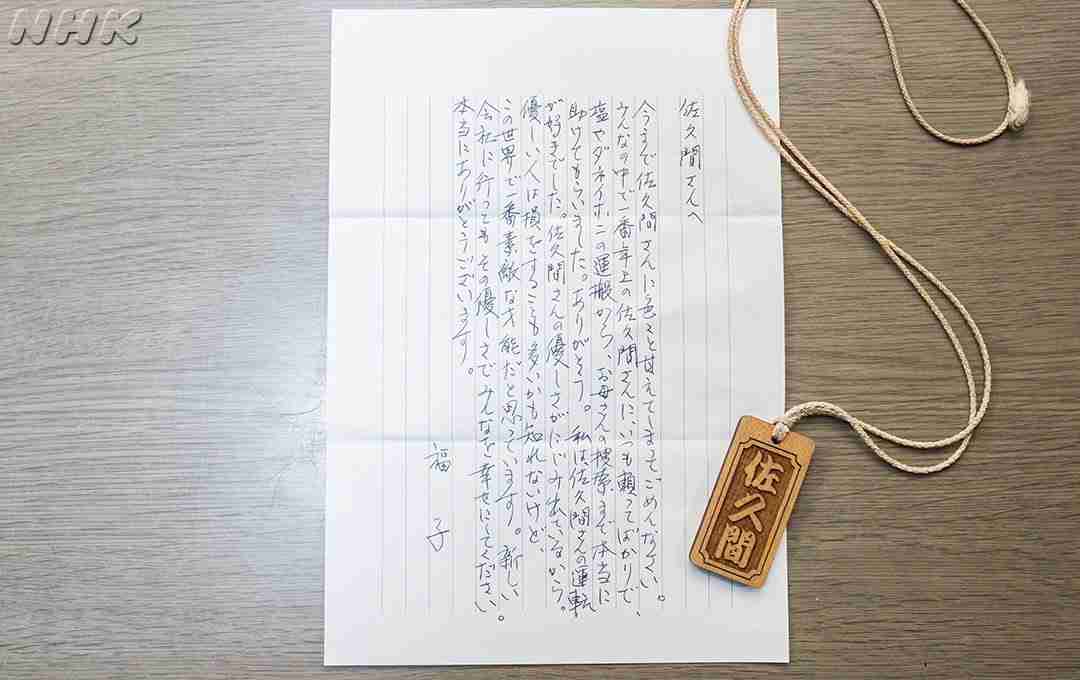 NHK
佐久間さんへ
今まで佐久間さんに色々と甘えてしまってごめんなさい。
みんなの中で一番年上の佐久間さんに、いつも頼ってばかりで、
塩やダネイホンの運搬から、お母さんの捜索まで本当に
助けてもらいました。ありがとう。私は佐久間さんの運転
が好きでした。佐久間さんの優しさがにじみ出ているから。
優しい人は損をすることも多いかも知れないけど、
この世界で一番素敵な才能だと思っています。新しい
会社に行ってもその優しさでみんなを幸せにしてください。
本当にありがとうございます。
福子
佐久間